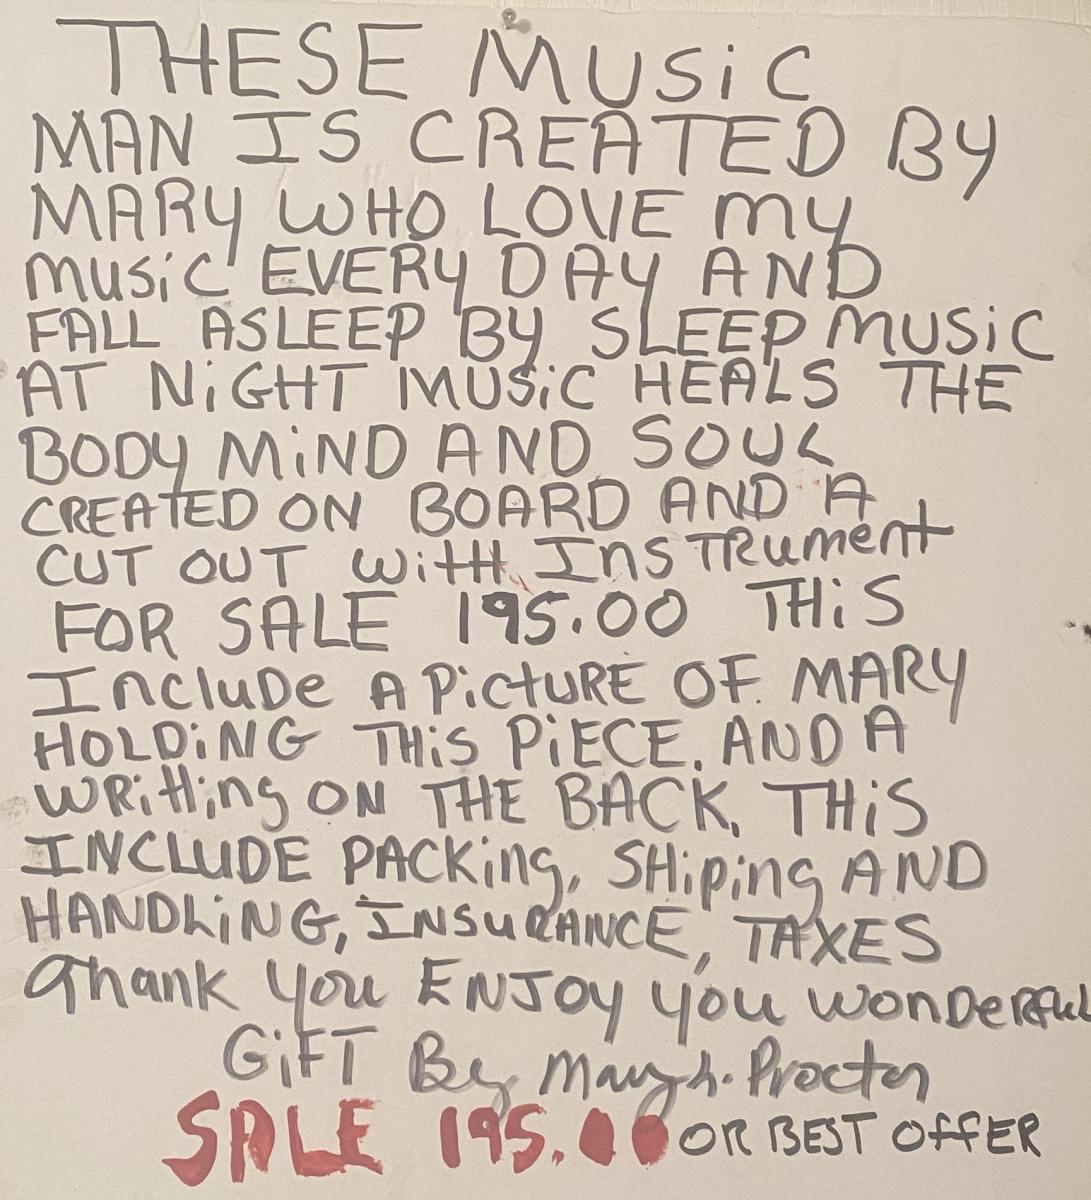 THESE MUSiC
MAN IS CREATED BY
MARY WHO LOVE my
music EVERY DAY AND
FALL ASLEEP BY SLEEP MUSiC
AT NiGHT MUSiC HEALS THE
BODY MiND AND SOUL
CREATED ON BOARD AND A
CUT OUT WitH InSTRument
FOR SALE 195.00 THiS
IncluDe A PictURE OF MARY
HOLDiNG THiS PiECE. AND A
WRitting ON THE BACK, THiS
INCLUDE PACKing, SHiping AND
HANDLiNG, INSuRANCE, TAXES
Thank you ENJOY you wonDeRFuL
GiFT By Mary L. Proctor
SALE 195.00 OR BEST OffER